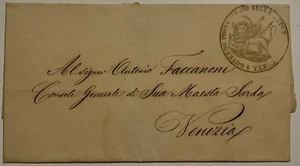 Al Signor Antonio Faccanoni
Console Generale di Sua Maestà Sarda
Venezia